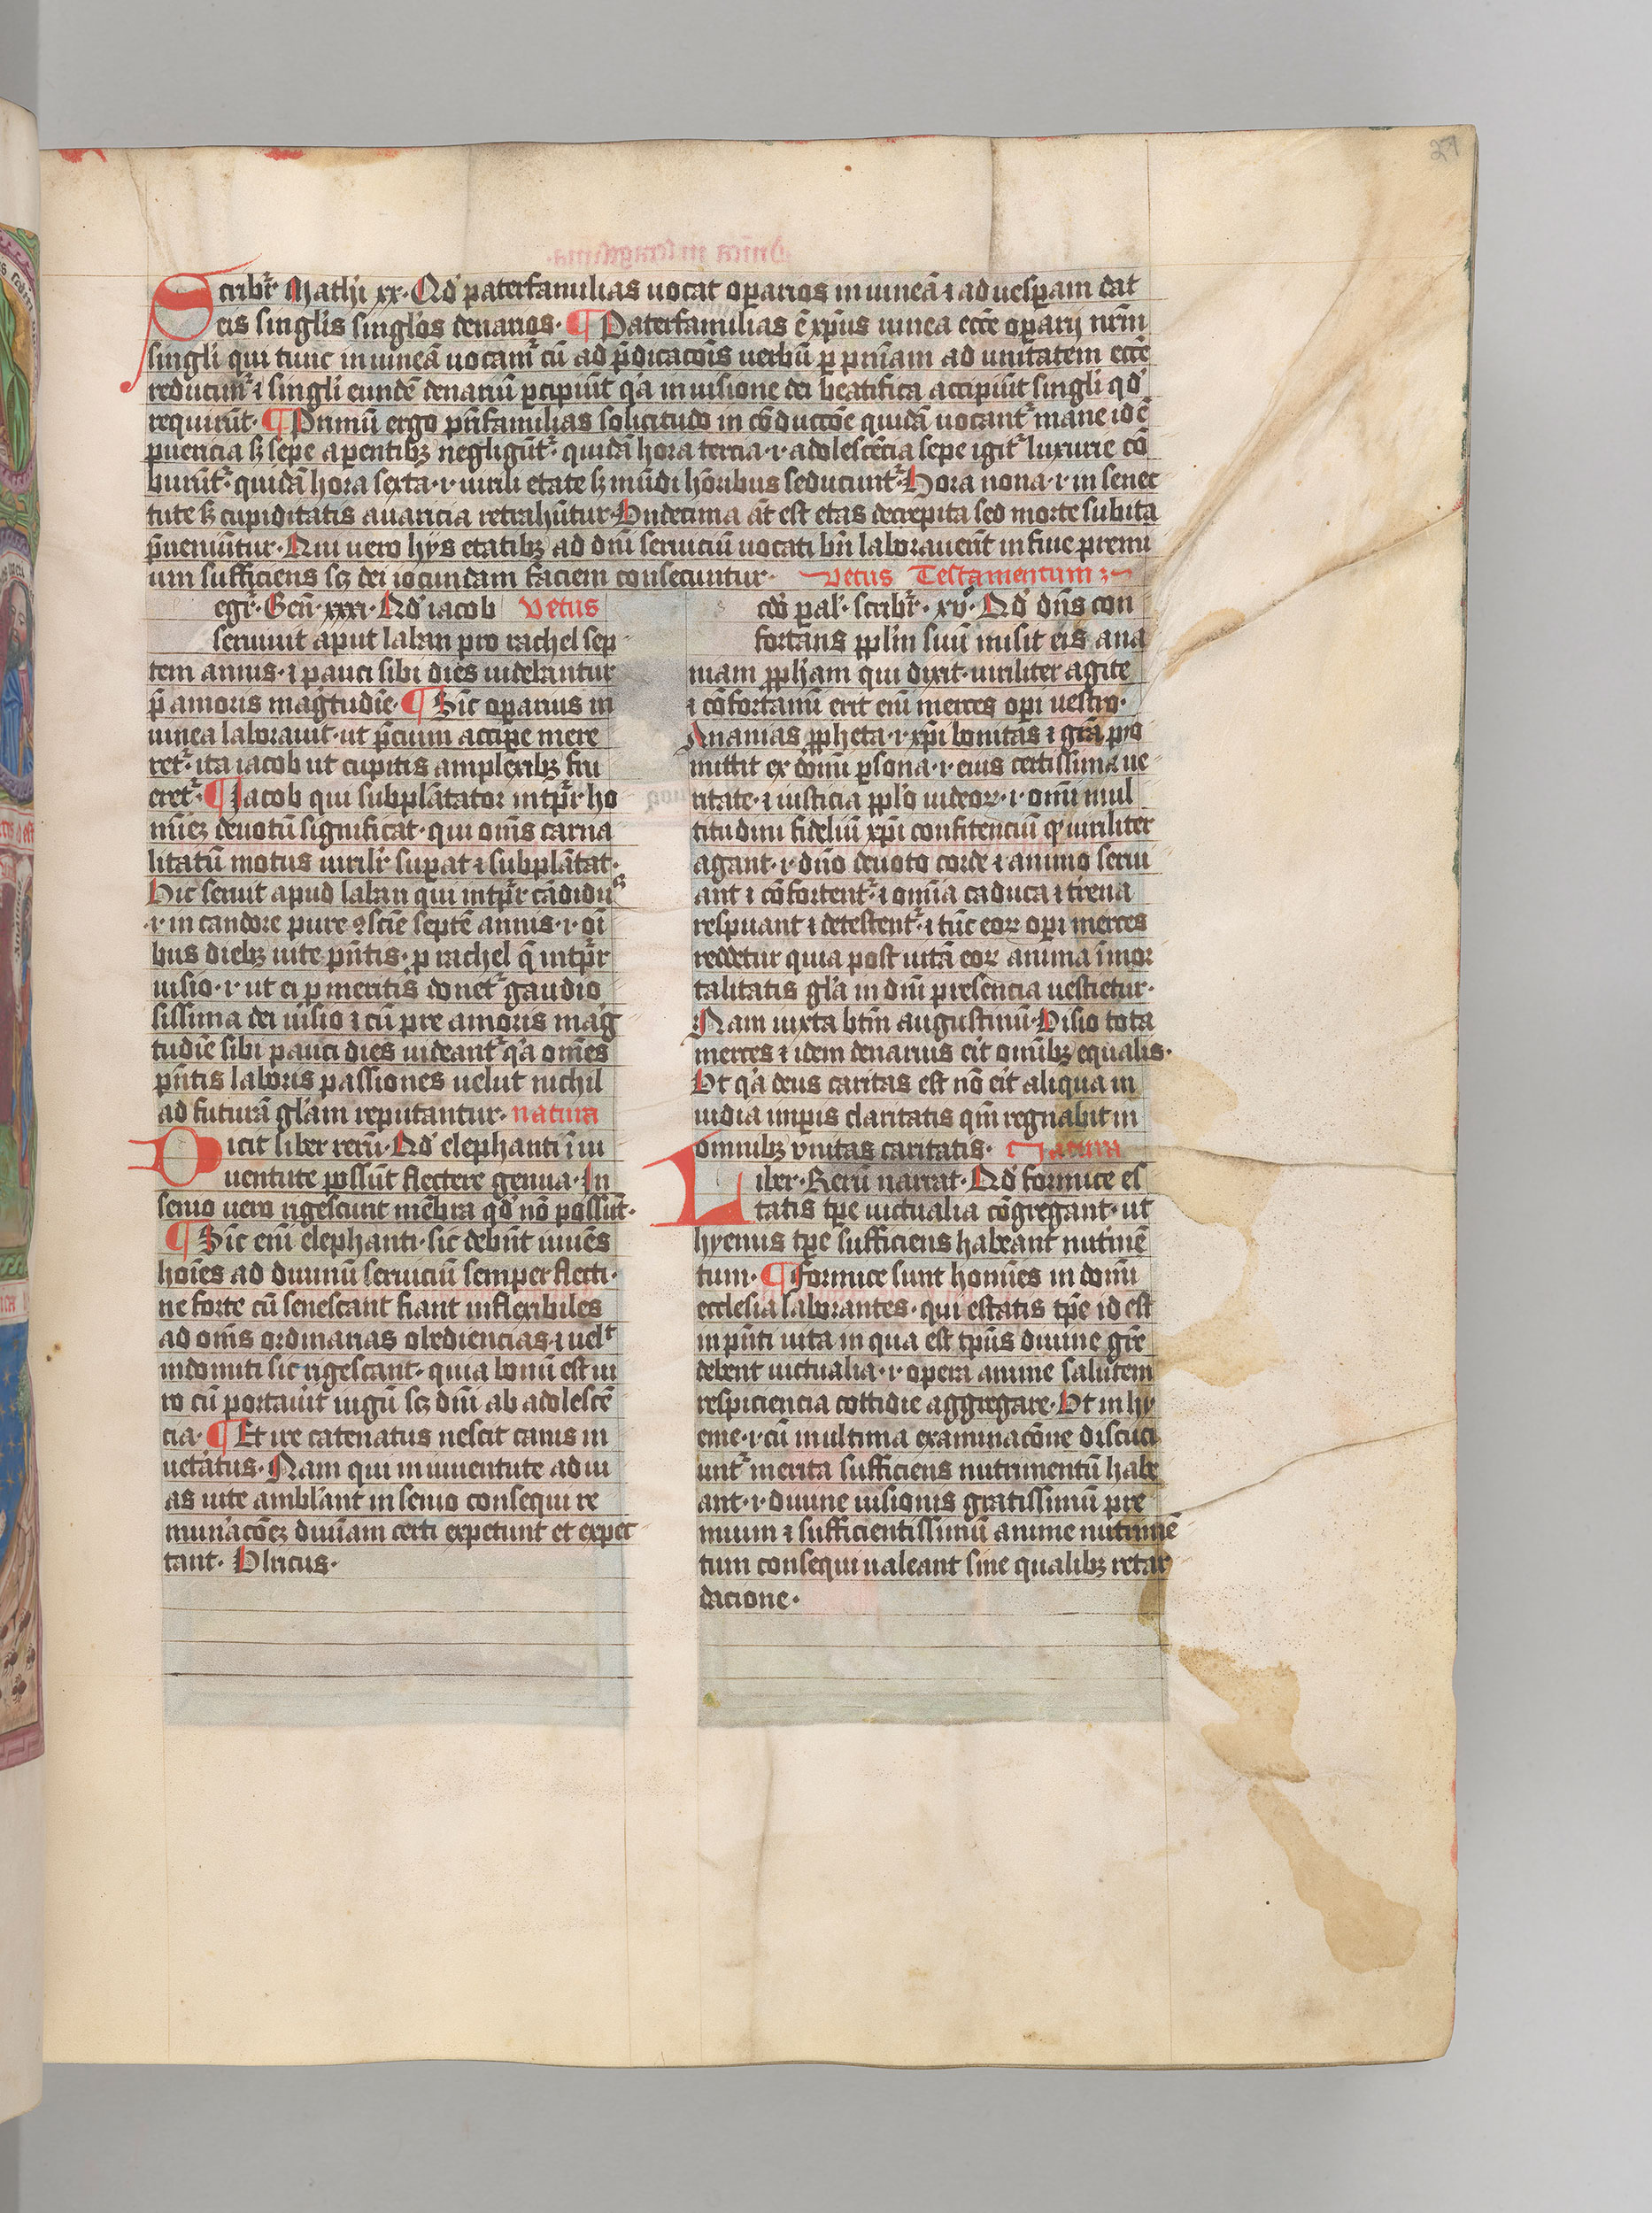 27
Scribit᷑ Mathi xx · Qd' paterfamilias uocat oꝑarios in uineā ⁊ ad uesꝑam dat
eis singl'is singl'os denarios · ¶ Paterfamilias ē xp̄us uinea ecc̄e oꝑarij nr̄m
singl'i qui tunc in uineā uocam᷑ cū ad p̄dicacōis uerbū ꝑ pn̄iam ad unitatem ecc̄e
reducim᷑ ⁊ singl'i eundē denariū ꝑcipiūt q'a in uisione dei beatifica accipiūt singl'i qd'
requirūt · ¶ Primū ergo pr̄isfamilias solicitudo in cōduccōe quidā uocant᷑ mane id ē
puericia sꝫ sepe a parentibꝫ negligūt᷑ · quidā hora tercia · i · adolescēcia sepe igit᷑ luxurie cō
burūt᷑ · quidā hora sexta · i · uirili etate sꝫ mūdi hōribus seducunt᷑ · Hora nona · i · in senec
tute sꝫ cupiditatis auaricia retrahūtur · Vndecima āt est etas decrepita sed morte subita
p̄ueniūtur · Qui uero hijs etatibꝫ ad dn̄i seruiciū uocati bn̄ laborauerīt in fine premi
um sufficiens scꝫ dei iocundam faciem consecuntur · Vetus Testamentum
egit᷑ · Gen̄ · xxxi · Qd' iacob Vetus
seruiuit aput laban pro rachel sep
tem annis · ⁊ pauci sibi dies uidebantur
p̄ amoris mag̅tudīe · ¶ Sic oꝑarius in
uinea laborauit · ut p̄cium acciꝑe mere
ret᷑ · ita iacob ut cupitis amplexibꝫ fru
eret᷑ · ¶ Jacob qui subplātator intp̄r ho
mīeꝫ deuotū significat · qui om̄s carna
litatū motus uirilr̄ suꝑat ⁊ subplātat ·
Hic seruit apud laban qui intp̄r cādidus
· i · in candore pure ꝯsciē septē annis · i · oī
bus diebꝫ uite pn̄tis · ꝑ rachel q̄ intp̄r
uisio · i · ut ei ꝑ meritis donet᷑ gaudio
sissima dei uisio ⁊ cū pre amoris mag̅
tudīe sibi pauci dies uideant᷑ q'a om̄es
pn̄tis laboris passiones uelut nichil
ad futurā gl'am reputantur · natura
Dicit liber rerū · Qd' elephanti ī iu
uentute possūt flectere genua · In
senio uero rigescunt mēbra qd' nō possūt ·
¶ Sic enī elephanti · sic debn̄t iuuēs
hoīes ad diuinū seruiciū semper flecti ·
ne forte cū senescant fiant inflexibiles
ad om̄s ordinarias obediencias · ⁊ uelt
indomiti sic rigescant · quia bonū est ui
ro cū portauit iugū scꝫ dn̄i ab adolescē
cia · ¶ Et ire catenatus nescit canis in
uet'atus · Nam qui in iuuentute ad ui
as uite ambl'ant in senio consequi re
mun'acōeꝫ diuīam certi expetunt et expec
tant · Vlricus ·
cdō paral' · scribit᷑ · xvº · Qd' dn̄s con
fortans ppl'm suū misit eis ana
niam ꝓph'am qui dixit · uiriliter agite
⁊ cōfortamī erit enī merces oꝑi uestro ·
Ananias ꝓpheta · i · xp̄i bonitas ⁊ grā pro
mittit ex dom̄i ꝑsona · i · eius certissima ue
ritate · ⁊ iusticia ppl'o iudeoꝝ · i · omī mul
titudini fideliū xp̄i confitenciū ꝙ uiriliter
agant · i · dn̄o deuoto corde ⁊ animo serui
ant ⁊ cōfortent᷑ · ⁊ omīa caduca ⁊ t'rena
respuant ⁊ detestent᷑ · ⁊ tūc eoꝝ oꝑi merces
reddetur quia post uitā eoꝝ anima īmor
talitatis gl'a in dn̄i presencia uestietur ·
Nam iuxta btm̄ augustinū · Visio tota
merces ⁊ idem denarius erit omībꝫ equalis ·
Et q'a deus caritas est nō erit aliqua in
uidia imꝑis claritatis qm̄ regnabit in
omnibꝫ vnitas caritatis · Natura
Liber · Rerū narrat · Qd' formice es
tatis tꝑe uictualia cōgregant · ut
hyemis tꝑe sufficiens habeant nutimē
tum · ¶ Formice sunt homīes in dom̄i
ecclesia laborantes · qui estatis tꝑe id est
in pn̄ti uita in qua est tp̄us diuine gr̄e
debent uictualia · i · opera anime salutem
respiciencia cottidie aggregare · Vt in hy
eme · i · cū in ultima examinacōne discuci
unt᷑ merita sufficiens nutrimentū habe
ant · i · diuine uisionis gratissimū pre
mium ⁊ sufficientissimū anime nutrimē
tum consequi ualeant sine qualibꝫ retar
dacione ·